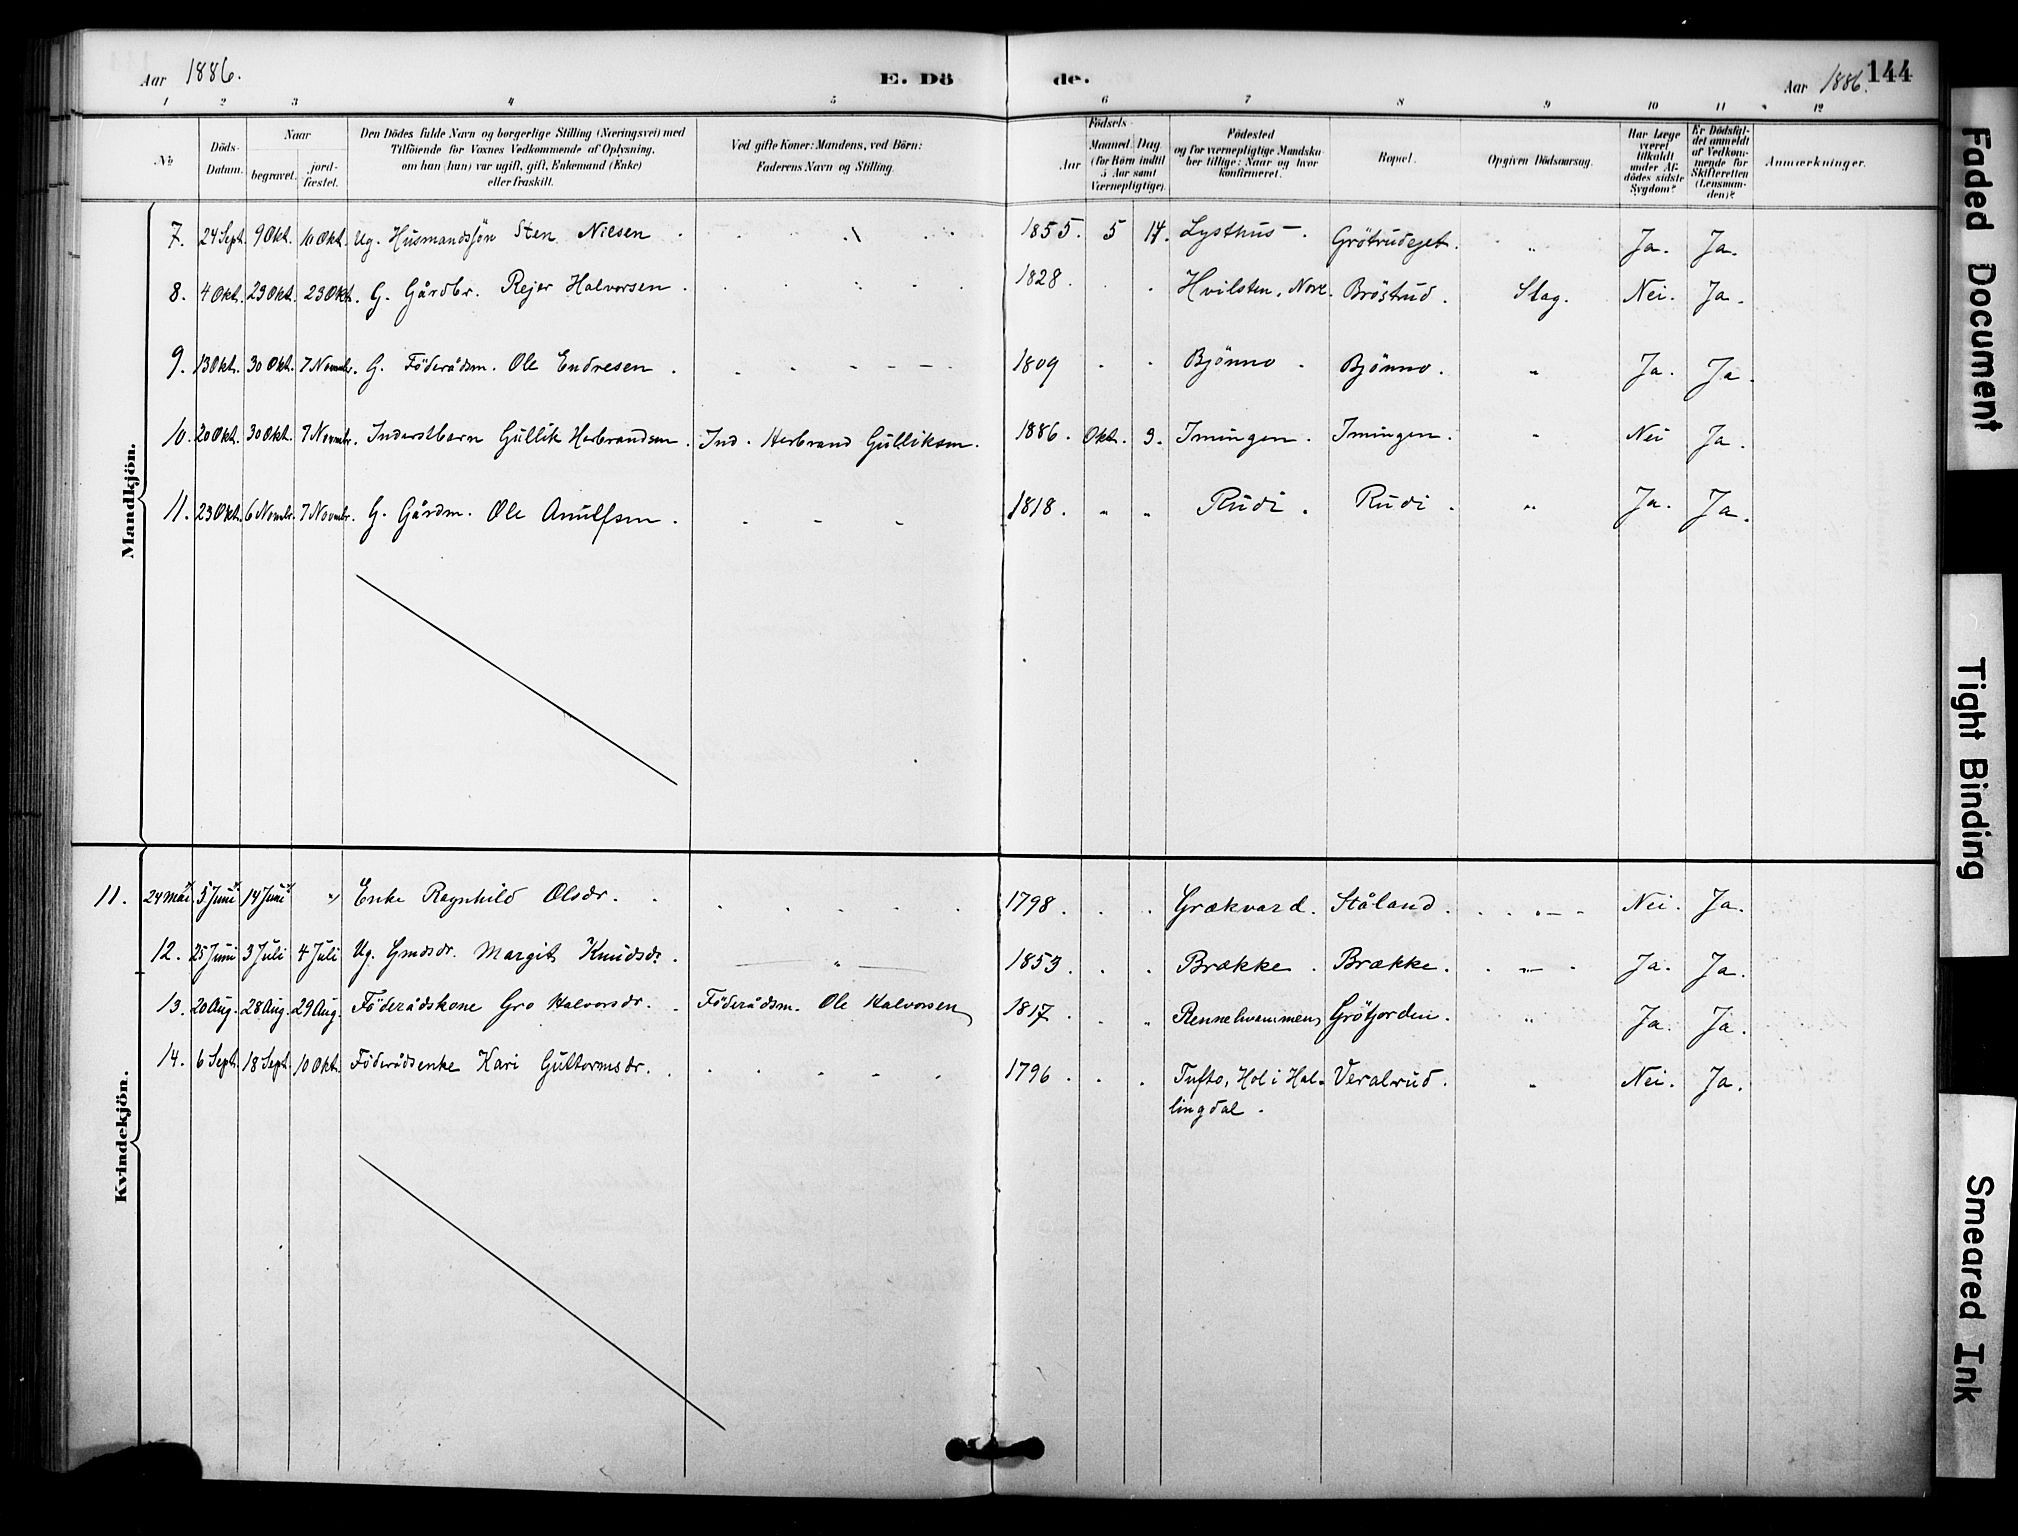 Aar 1886.
E. Dö de.
Aar 1886.
144
1 2 3 4 5 6 7 8 9 10 11 12
№
Döds-Datum.
Naar
begravet.
jord-fæstet.
Den Dödes fulde Navn og borgerlige Stilling (Næringsvei) med
Tilföiende for Voxnes Vedkommende af Oplysning,
om han (hun) var ugift, gift, Enkemand (Enke)
eller fraskilt.
Ved gifte Koner: Mandens, ved Börn:
Faderens Navn og Stilling.
Födsels-
Aar
Maaned. Dag
(for Börn indtil
5 Aar samt
Værnepligtige).
Födested
og for værnepligtige Mandska-
ber tillige: Naar og hvor
konfirmeret.
Bopæl.
Opgiven Dödsaarsag.
Har Læge
været
tilkaldt
under Af-
dödes sidste
Sygdom?
Er Dödsfal-
det anmeldt
af Vedkom-
mende for
Skifteretten
(Lensman-
den)?
Anmærkninger.
Mandkjön.
7. 24 Sept. 9 Okt. 10 Okt. Ug. Husmandssön Sten Nilsen . 1855. 5 14. Lysthus . Grötrudejet . " Ja. Ja.
8. 4 Okt. 23 Okt. 23 Okt. G. Gårdbr. Rejer Halvorsen . 1828 . . Hvilsten, Nore. Bröstrud . Slag. Nei. Ja.
9. 13 Okt. 30 Okt. 7 Novembr. G. Föderådsm. Ole Endresen . 1809 . . Bjönno . Bjönno . " Ja. Ja.
10. 20 Okt. 30 Okt. 7 Novembr. Inderstbarn Gullik Herbrandsen . Ind. Herbrand Gulliksen . 1886. Okt. 3. Imingen . Imingen . " Nei Ja.
11. 23 Okt. 6 Novmbr. 7 Novmbr. G. Gårdm. Ole Anulfsen . 1818 . " " Rudi . Rudi . " Ja. Ja.
Kvindekjön.
11. 24 Mai 5 Juni 14 Juni " Enke Ragnhild Olsdr. 1798 . . . Grækvard . Ståland . " Nei. Ja.
12. 25 Juni 3 Juli 4 Juli Ug. Gmdsdr. Margit Knudsdr. " 1853 . . . Brække . Brække . " Ja. Ja.
13. 20 Aug. 28 Aug. 29 Aug. Föderådskone Gro Halvorsdr. Föderådsm. Ole Halvorsen 1817 . . " Rennehvammen Gröfjorden . " Ja. Ja.
14. 6 Sept. 18 Sept. 10 Okt. Föderådsenke Kari Guttormsdr. 1796 . . . Tufto, Hol i Hal- Veralrud . " Nei. Ja.
lingdal .
Faded Document
Tight Binding
Smeared Ink